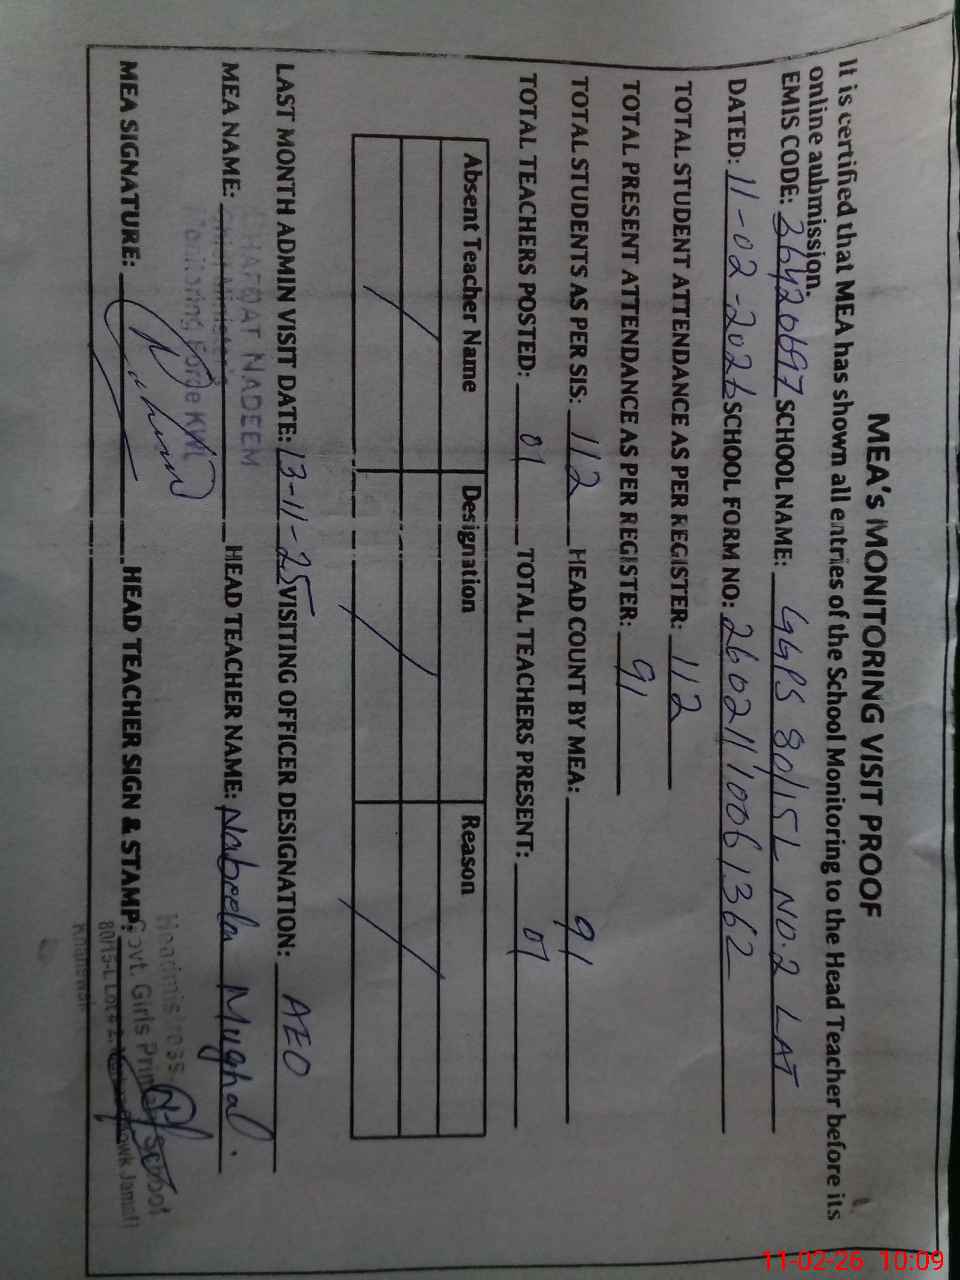 MEA's MONITORING VISIT PROOF
It is certified that MEA has shown all entries of the School Monitoring to the Head Teacher before its
online aubmission.
EMIS CODE: 36420697 SCHOOL NAME: GGPS 80/15L NO.2 LAT
DATED: 11-02-2026 SCHOOL FORM NO: 26021110061362
TOTAL STUDENT ATTENDANCE AS PER REGISTER: 112
TOTAL PRESENT ATTENDANCE AS PER REGISTER: 91
TOTAL STUDENTS AS PER SIS: 112 HEAD COUNT BY MEA: 91
TOTAL TEACHERS POSTED: 01 TOTAL TEACHERS PRESENT: 01
Absent Teacher Name Designation Reason
LAST MONTH ADMIN VISIT DATE: 13-11-25 VISITING OFFICER DESIGNATION: AEO
MEA NAME: HEAD TEACHER NAME: Nabeela Mughal.
NADEEM
Monitoring Force KWL
MEA SIGNATURE: HEAD TEACHER SIGN & STAMP:
Headmistress
Govt. Girls Primary School
80/15-L
Khanewal
11-02-26 10:09